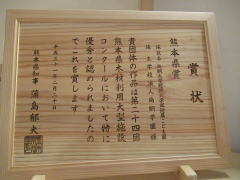 熊本県賞
賞状
施主 学校法人尚絅学園 様
貴団体の作品は第二十四回
熊本県木材利用大型施設
コンクールにおいて特に
優秀と認められましたの
でこれを賞します
平成三十一年二月二十日
熊本県知事 蒲島郁夫